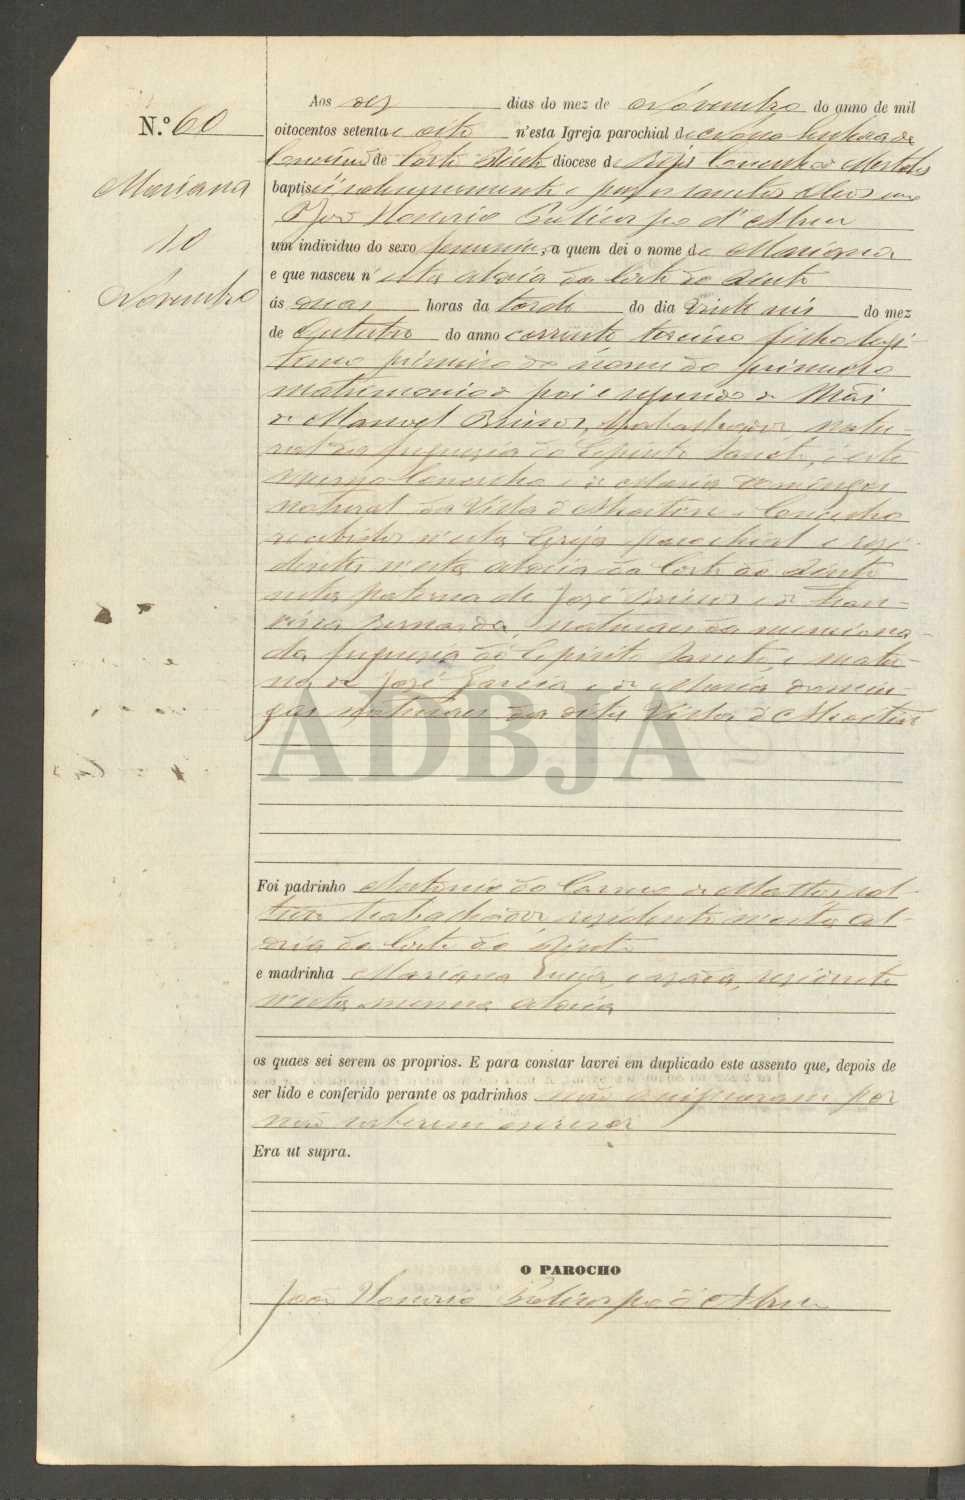 N.º 60
Marianna
10
Novembro
Aos dez dias do mez de Novembro do anno de mil
oitocentos setenta e oito n'esta Igreja parochial de Nossa Senhora da
Conceição de Corte do Pinto diocese de Beja Concelho de Mertola
baptisei solemnemente e puz os santos oleos eu
P. João Honorio Policarpo d'Abreu
um individuo do sexo femenino, a quem dei o nome de Marianna
e que nasceu n'esta aldeia da Corte do Pinto
ás duas horas da tarde do dia vinte seis do mez
de Outubro do anno corrente terceiro filho legi-
timo primeiro do nome do primeiro
matrimonio do pai e segundo da Mãi
de Manoel trabalhador natu-
ral da freguezia do Espirito Sancto, d'este
mesmo Concelho e de Maria Domingas
natural da Villa de e Concelho
recebidos n'esta Igreja parochial e rezi-
dentes n'esta aldeia da Corte do Pinto
neta paterna de José e de Fran-
cisca Bernarda, naturaes da menciona-
da freguezia do Espirito Sancto, e mater-
na de José Garcia e de Maria Domin-
gas naturaes da dita Villa de
ADBJA
Foi padrinho Antonio do Carmo de Mattos sol-
teiro trabalhador rezidente n'esta al-
deia da Corte do Pinto
e madrinha Mariana Luiza, cazada, rezidente
n'esta mesma aldeia
os quaes sei serem os proprios. E para constar lavrei em duplicado este assento que, depois de
ser lido e conferido perante os padrinhos não assignaram por
não saberem escrever
Era ut supra.
O PAROCHO
João Honorio Policarpo d'Abreu